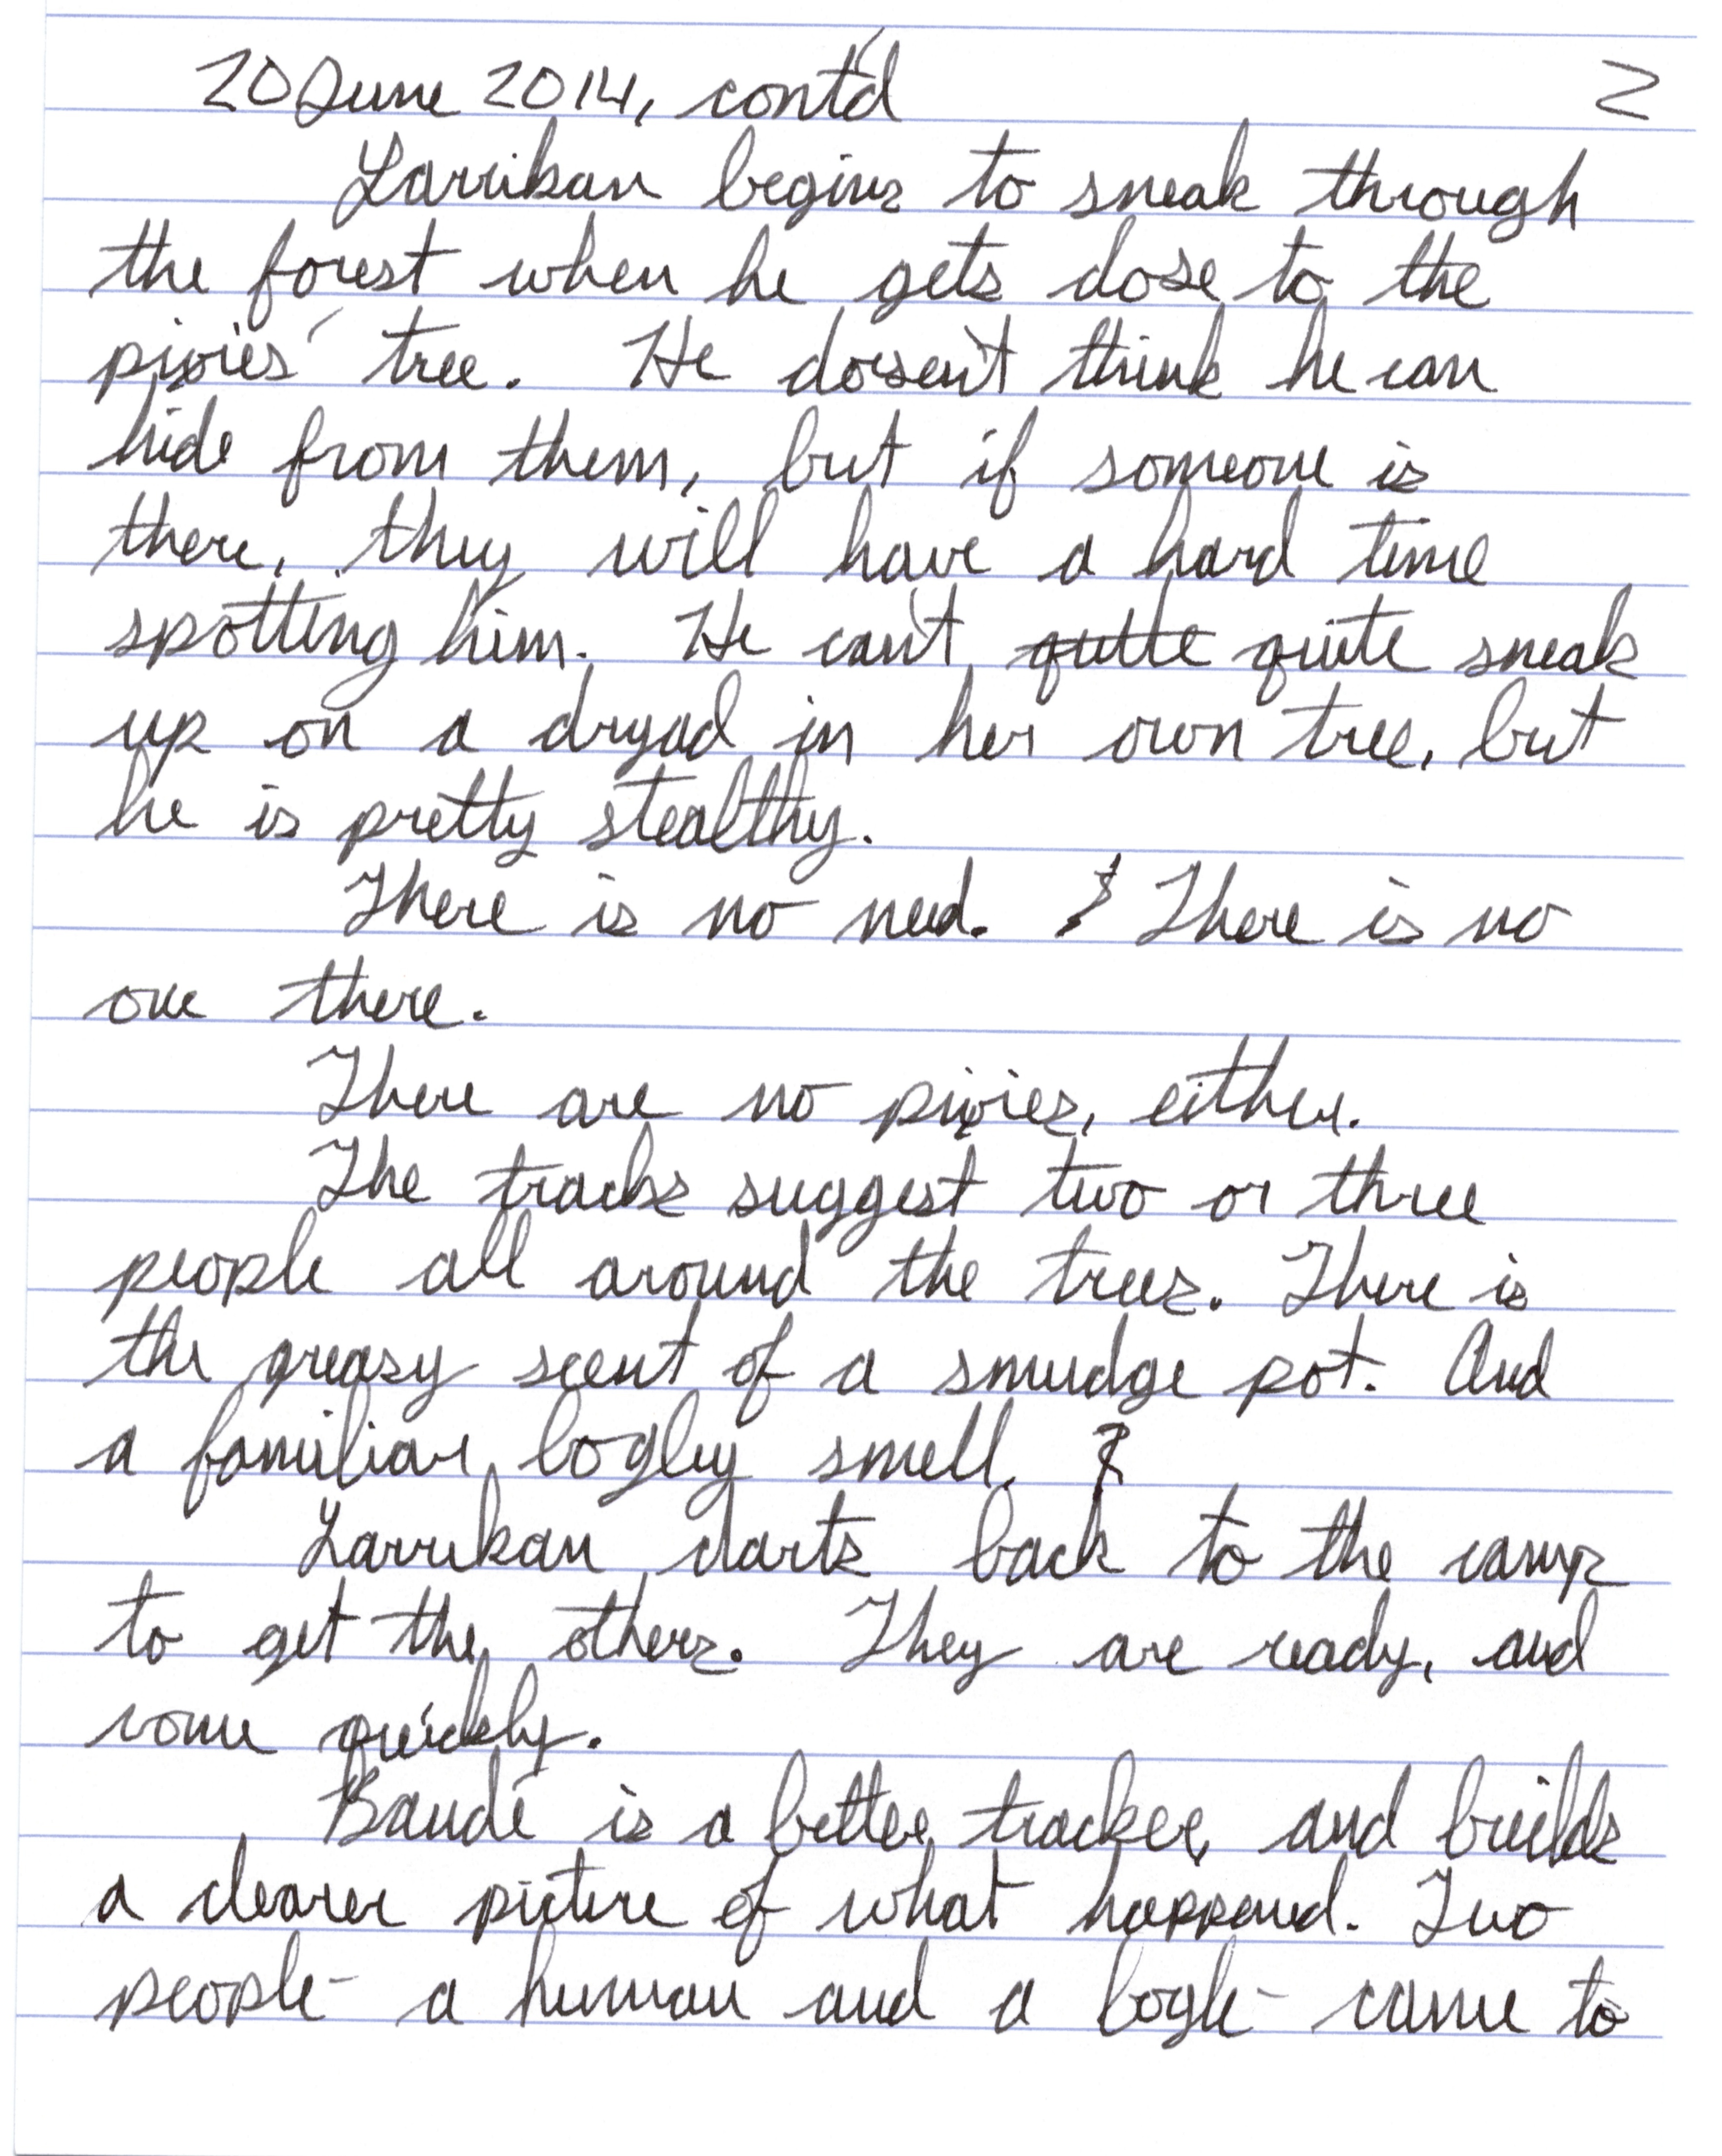 20 June 2014, cont'd 2
Larrikan begins to sneak through
the forest when he gets close to the
pixies' tree. He doesn't think he can
hide from them, but if someone is
there, they will have a hard time
spotting him. He can't quitte quite sneak
up on a dryad in her own tree, but
he is pretty stealthy.
There is no need. There is no
one there.
There are no pixies, either.
The tracks suggest two or three
people all around the trees. There is
the greasy scent of a smudge pot. And
a familiar bogley smell.
Larrikan darts back to the camp
to get the others. They are ready, and
come quickly.
Baudé is a better tracker, and builds
a clearer picture of what happened. Two
people - a human and a bogle - came to